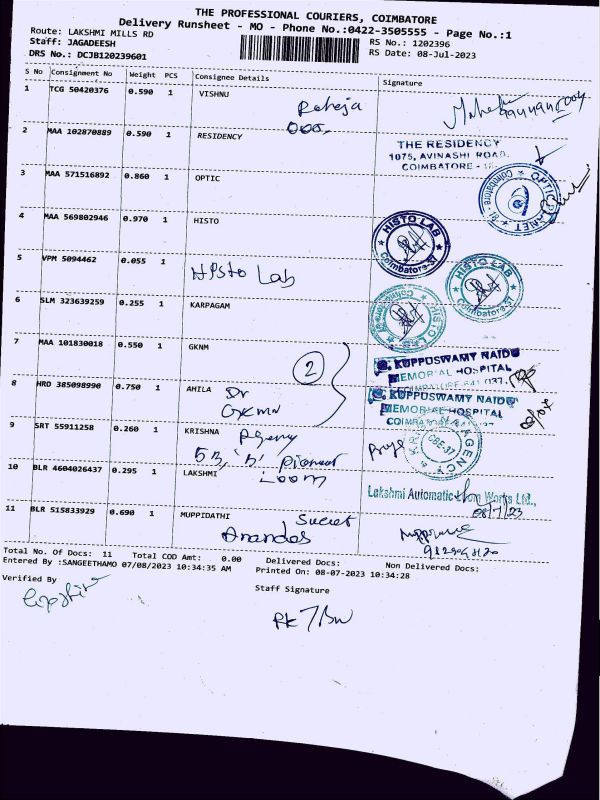 THE PROFESSIONAL COURIERS, COIMBATORE
Delivery Runsheet - MO - Phone No.:0422-3505555 - Page No.:1
Route: LAKSHMI MILLS RD
RS No.: 1202396
Staff: JAGADEESH
RS Date: 08-Jul-2023
DRS No.: DCJB120239601
S No Consignment No Weight PCS Consignee Details Signature
1 TCG 50420376 0.590 1 VISHNU
Raheja
2 MAA 102870889 0.590 1 RESIDENCY
THE RESIDENCY
1075, AVINASHI ROAD,
COIMBATORE
3 MAA 571516892 0.860 1 OPTIC
4 MAA 569802946 0.970 1 HISTO
HISTO LAB
Coimbatore-37
5 VPM 5094462 0.055 1
Histo Lab
HISTO LAB
Coimbatore-37
6 SLM 323639259 0.255 1 KARPAGAM
HISTO LAB
7 MAA 101830018 0.550 1 GKNM
2
G. KUPPUSWAMY NAIDU
MEMORIAL HOSPITAL
COIMBATORE-641 037.
8 HRD 385098990 0.750 1 AHILA
Dr
GKMN
G. KUPPUSWAMY NAIDU
MEMORIAL HOSPITAL
9 SRT 55911258 0.260 1 KRISHNA
Agency
CBE-37
AGENCY
53, 'D' Pioneer
10 BLR 4604026437 0.295 1 LAKSHMI
Loom
Lakshmi Automatic Loom Works Ltd.,
08/7/23
11 BLR 515833929 0.690 1 MUPPIDATHI
Suceet
Anandas
Total No. Of Docs: 11 Total COD Amt: 0.00 Delivered Docs: Non Delivered Docs:
Entered By :SANGEETHAMO 07/08/2023 10:34:35 AM Printed On: 08-07-2023 10:34:28
Verified By
Staff Signature